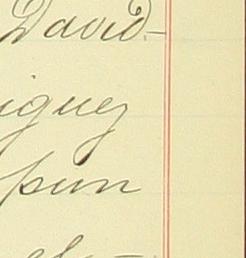 David-
iguez
pun